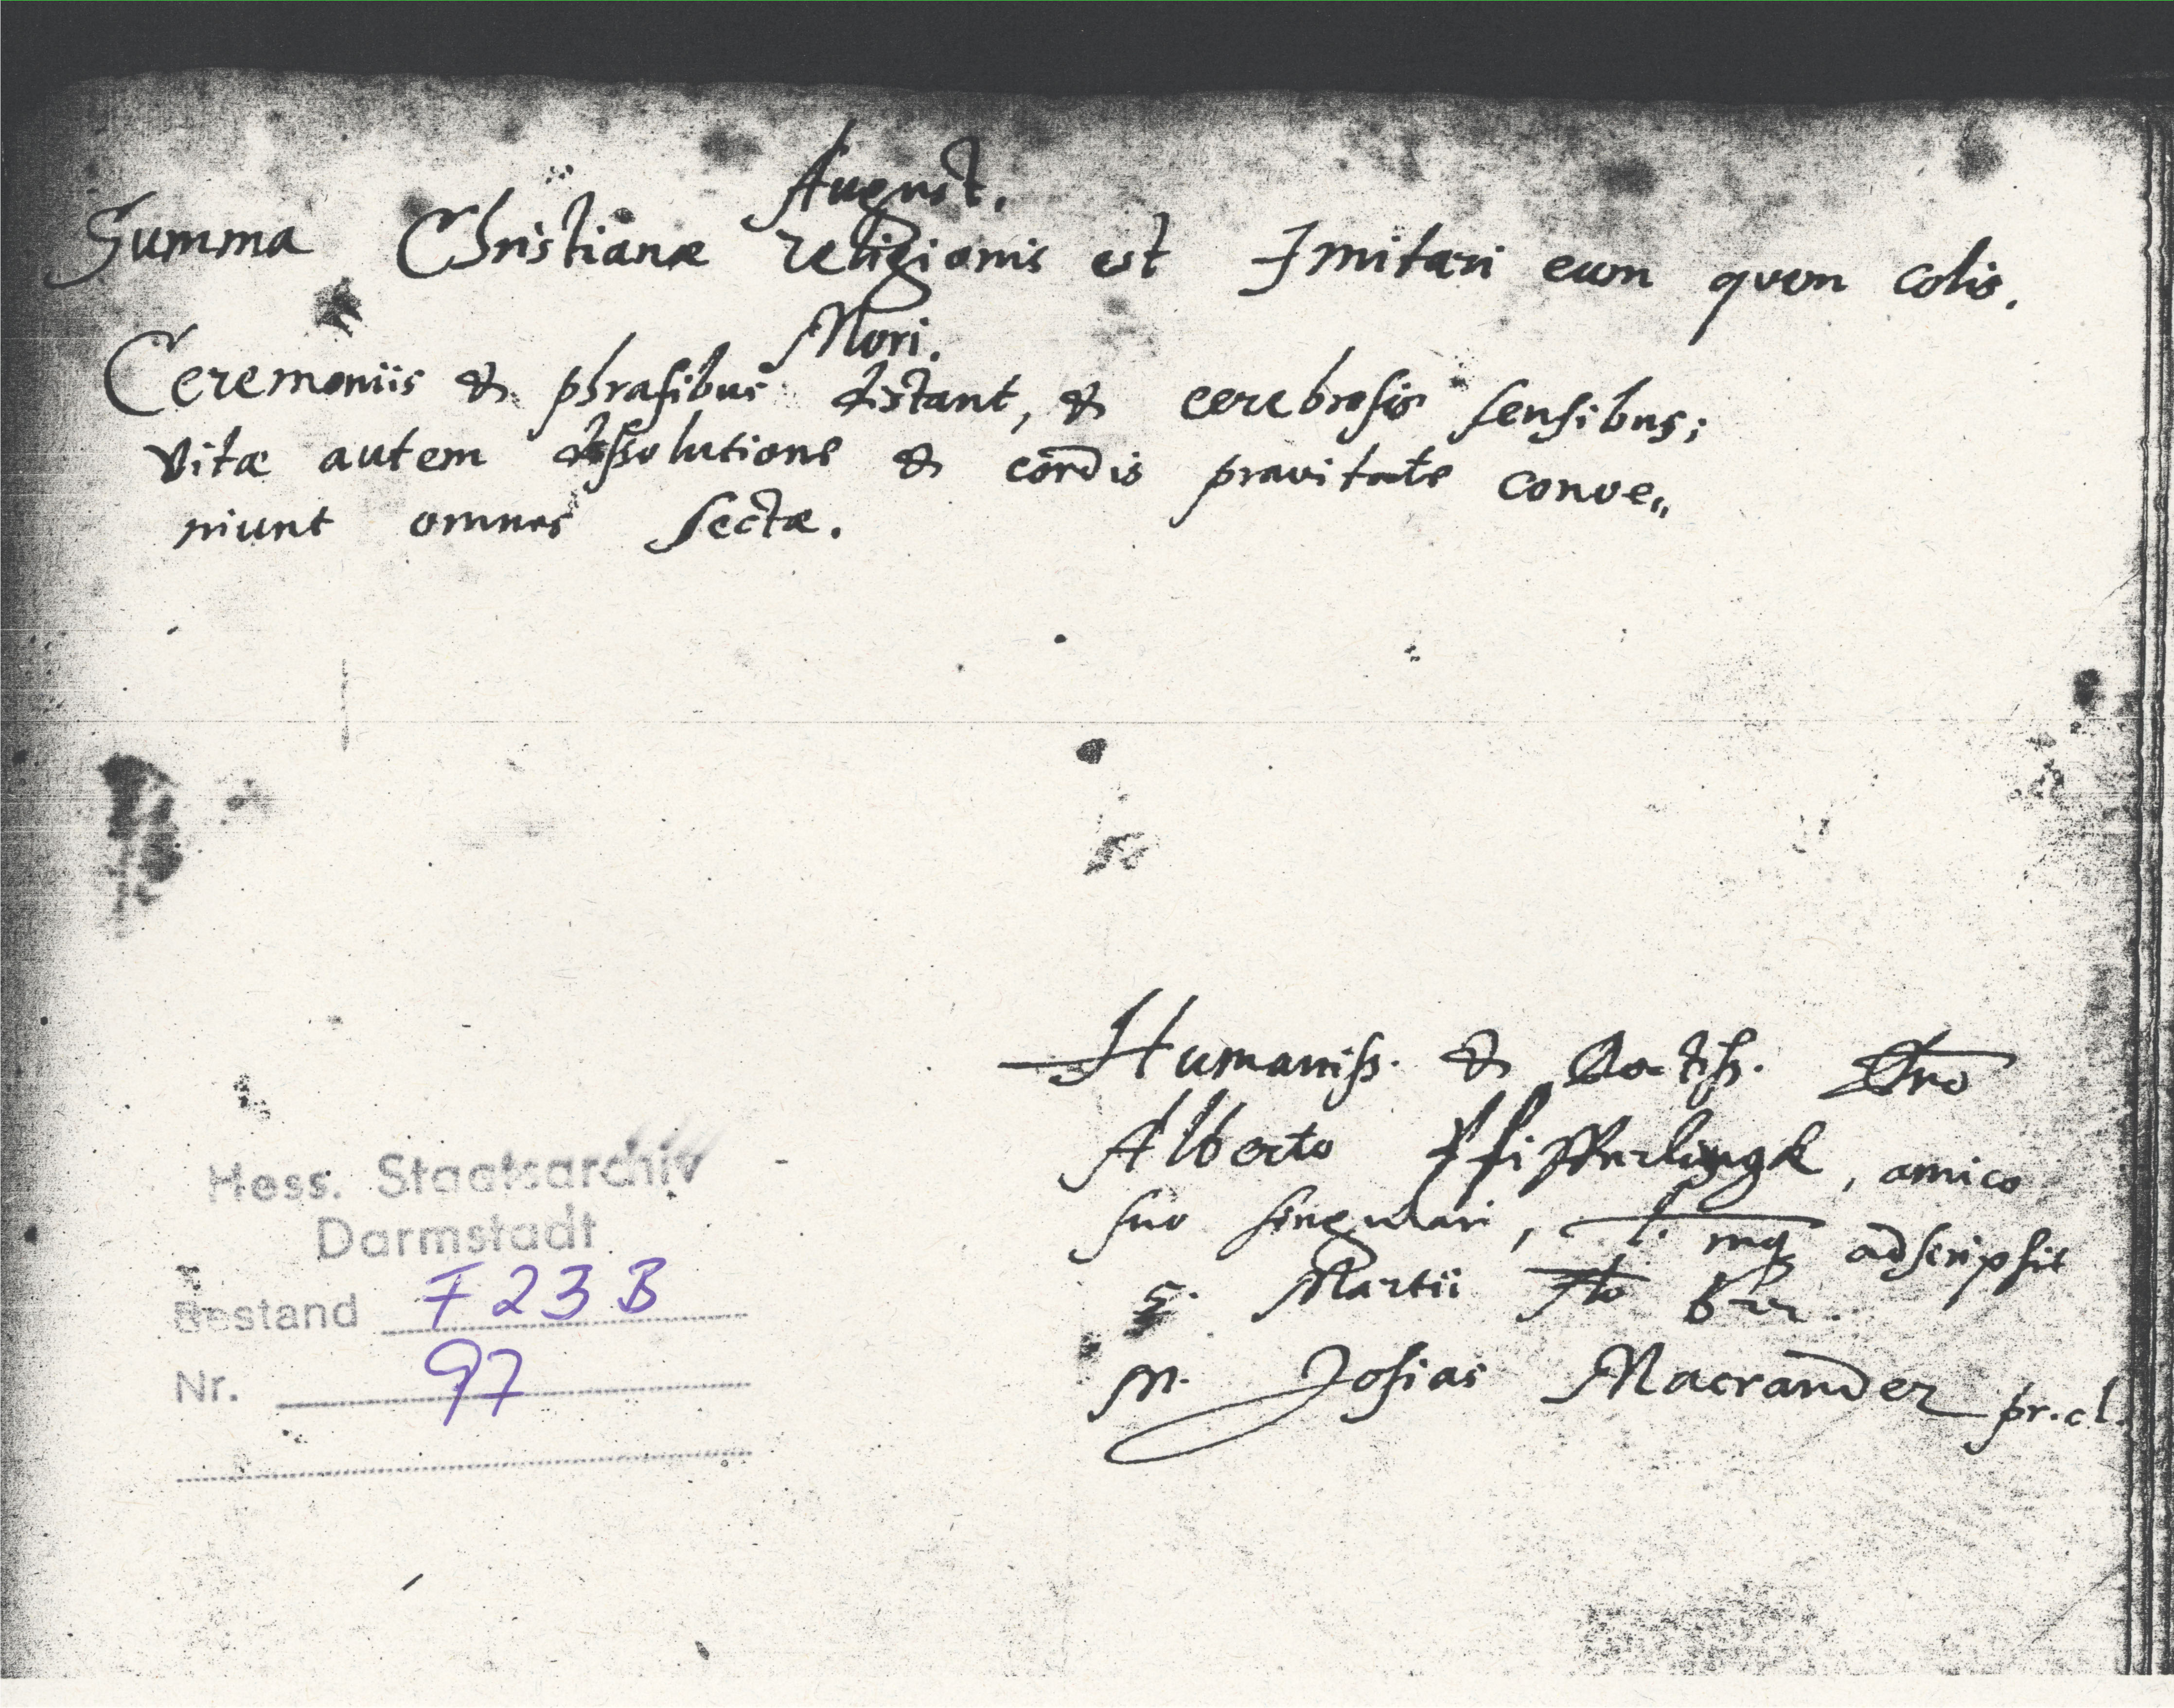 August.
Summa Christianæ religionis est Imitari eum quem colis.
Mori.
Ceremoniis & phrasibus distant, & cerebrosis sensibus;
vitæ autem dissolutione & cordis pravitate conve„
niunt omnes sectæ.
Humaniss. & Doctiss. Dno
Alberto , amico
suo singulari, mq adscripsit
5. Martii
M. Josias Macrander pr.cl.
Hess. Staatsarchiv
Darmstadt
Bestand F 23 B
Nr. 97